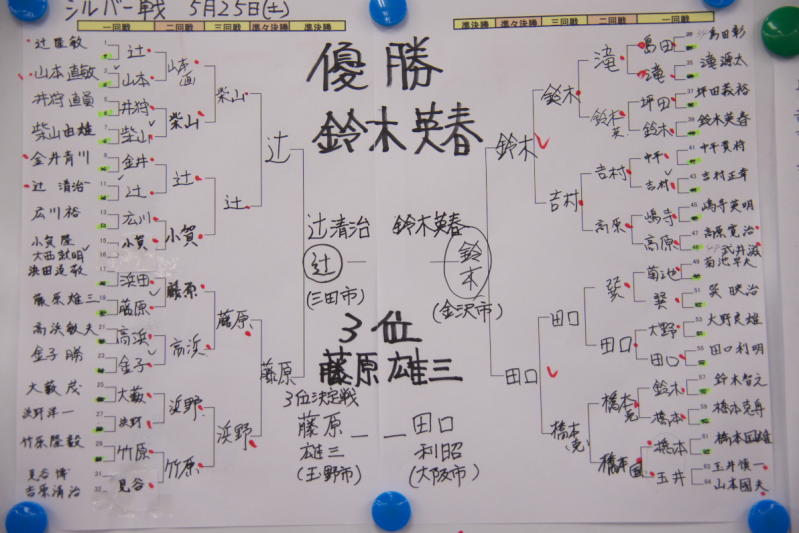 シルバー戦 5月25日(土)
一回戦 二回戦 三回戦 準々決勝 準決勝
準決勝 準々決勝 三回戦 二回戦 一回戦
優勝
鈴木英春
辻清治 鈴木英春
辻 鈴木
(三田市) (金沢市)
3位
藤原雄三
3位決定戦
藤原 田口
雄三 利昭
(玉野市) (大阪市)
山本直敏
柴山由雄
辻 清治
広川裕
小賀 隆
藤原雄三
金子 勝
大藪 茂
浜野洋一
竹原隆毅
見谷 博
吉原清治
辻
山本
井狩
柴山
金井
辻
広川
小賀
浜田
藤原
高浜
金子
大藪
浜野
竹原
見谷
山本(直)
柴山
辻
小賀
藤原
高浜
浜野
竹原
柴山
辻
藤原
浜野
辻
藤原
鈴木
田口
鈴木
吉村
田口
橋本(克)
滝
鈴木英
吉村
高原
巽
田口
橋本克
橋本國
島田
滝
坪田
鈴木
中平
吉村
嶋寺
高原
菊池
巽
大野
田口
鈴木
橋本
橋本
玉井
島田彰
滝 源太
坪田義裕
鈴木英春
吉村正幸
嶋寺英明
高原寛治
巽 映治
大野良雄
田口利明
鈴木智元
橋本國雄
玉井慎一
山本國夫